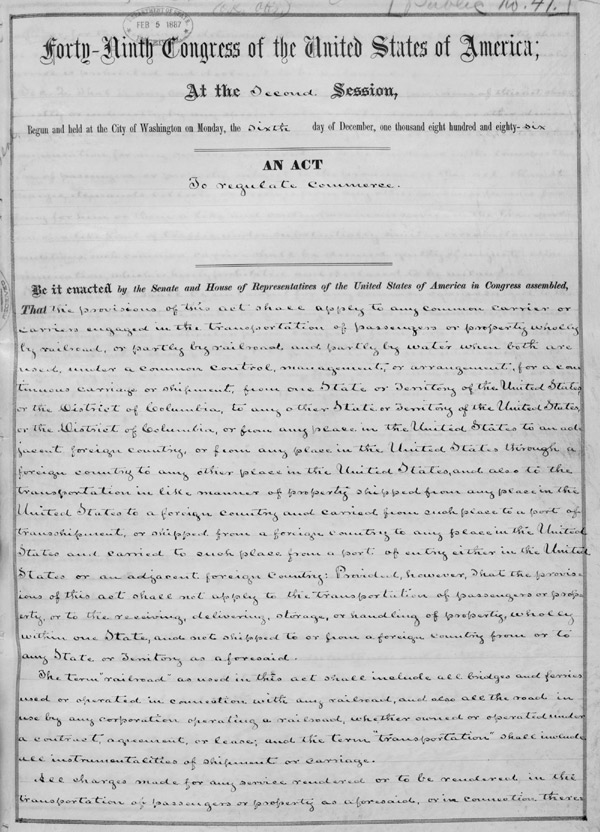 [Public No. 41.]
FEB 5 1887
Forty-Ninth Congress of the United States of America;
At the Second Session,
Begun and held at the City of Washington on Monday, the sixth day of December, one thousand eight hundred and eighty-six
AN ACT
To regulate commerce.
Be it enacted by the Senate and House of Representatives of the United States of America in Congress assembled,
That the provisions of this act shall apply to any common carrier or
carriers engaged in the transportation of passengers or property wholly
by railroad, or partly by railroad and partly by water when both are
used, under a common control, management, or arrangement, for a con
tinuous carriage or shipment, from one State or Territory of the United States,
or the District of Columbia, to any other State or Territory of the United States,
or the District of Columbia, or from any place in the United States to an ad
jacent foreign country, or from any place in the United States through a
foreign country to any other place in the United States, and also to the
transportation in like manner of property shipped from any place in the
United States to a foreign country and carried from such place to a port of
transshipment, or shipped from a foreign country to any place in the United
States and carried to such place from a port of entry either in the United
States or an adjacent foreign country: Provided, however, That the provis-
ions of this act shall not apply to the transportation of passengers or prop
erty, or to the receiving, delivering, storage, or handling of property, wholly
within one State, and not shipped to or from a foreign country from or to
any State or Territory as aforesaid.
The term "railroad" as used in this act shall include all bridges and ferries
used or operated in connection with any railroad, and also all the road in
use by any corporation operating a railroad, whether owned or operated under
a contract, agreement, or lease; and the term "transportation" shall include
all instrumentalities of shipment or carriage.
All charges made for any service rendered or to be rendered in the
transportation of passengers or property as aforesaid, or in connection there